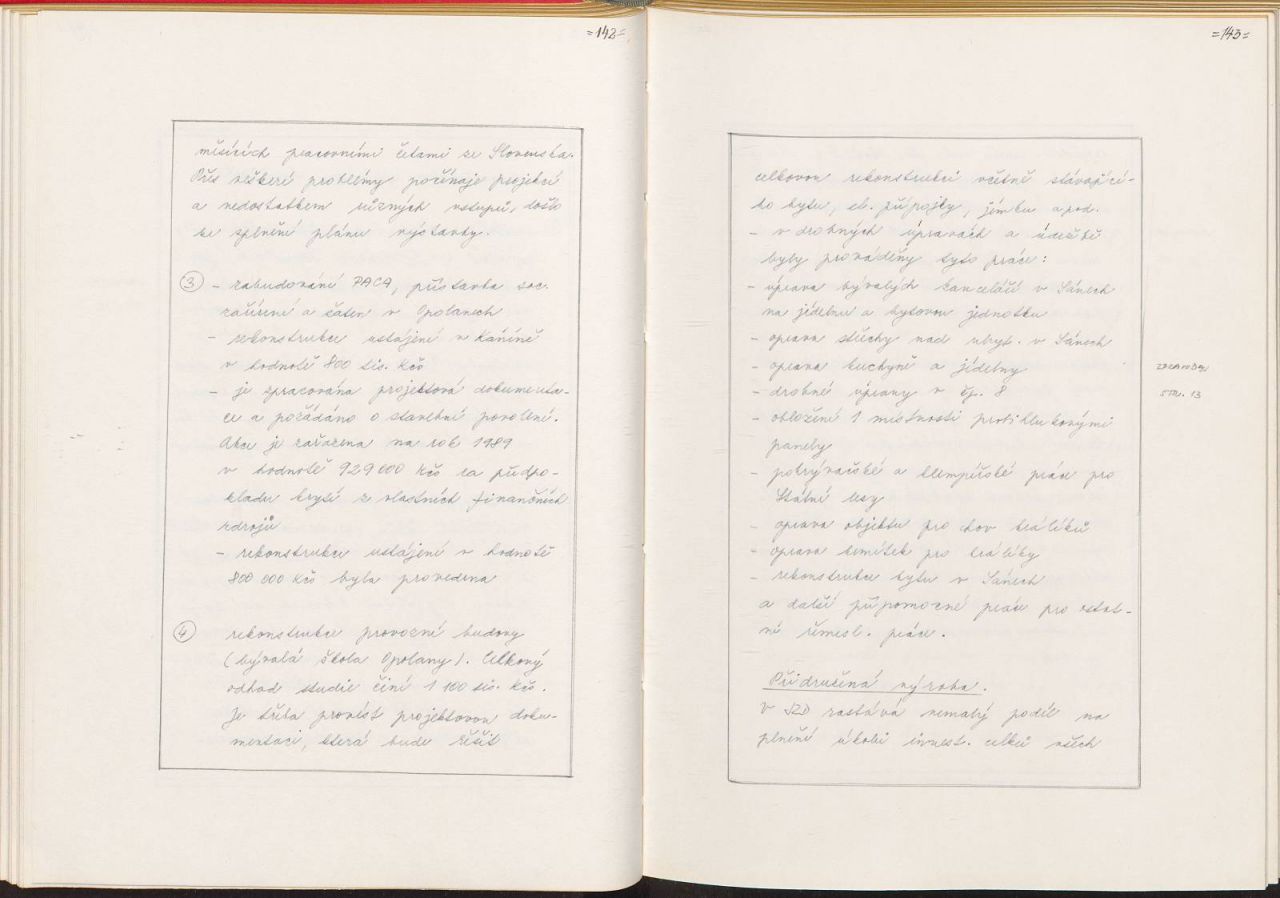 =142=
měsících pracovními četami ze Slovenska.
Přes veškeré problémy počínaje projekcí
a nedostatkem různých vstupů, došlo
ke splnění plánu výstavby.
3 - zabudování PACA, přístavba soc.
zařízení a šaten v Opolanech
- rekonstrukce ustájení v Kaníně
v hodnotě 800 tis. Kčs
- je zpracována projektová dokumenta-
ce a požádáno o stavební povolení.
Akce je zařazena na rok 1989
v hodnotě 929 000 Kčs za předpo-
kladu krytí z vlastních finančních
zdrojů
- rekonstrukce ustájení v hodnotě
800 000 Kčs byla provedena
4 rekonstrukce provozní budovy
(bývalá škola Opolany). Celkový
odhad studie činí 1 100 tis. Kčs.
Je třeba provést projektovou doku-
mentaci, která bude řešit
=143=
celkovou rekonstrukci včetně stávající-
ho bytu, el. přípojky, jímku apod.
- v drobných úpravách a údržbě
byly prováděny tyto práce:
- úprava bývalých kanceláří v Sánech
na jídelnu a bytovou jednotku
- oprava střechy nad ubyt. v Sánech
- oprava kuchyně a jídelny
- drobné úpravy v čp. 8
- obložení 1 místnosti protihlukovými
panely
- pokrývačské a klempířské práce pro
Státní lesy
- oprava objektu pro chov králíků
- oprava krmítek pro králíky
- rekonstrukce bytu v Sánech
a další přípomocné práce pro ostat-
ní řemesl. práce.
Přidružená výroba.
V JZD zastává nemalý podíl na
plnění úkolů invest. celků všech
STR. 13